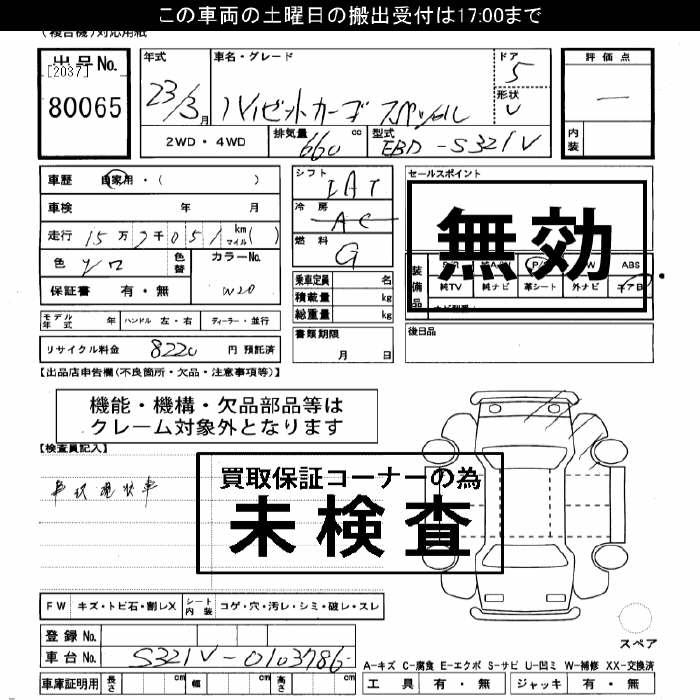 この車両の土曜日の搬出受付は17:00まで
(複合機)対応用紙
出品No.
[2037]
80065
年式
23/3月
車名・グレード
ハイゼットカーゴ スペシャル
ドア
5
形状
V
評価点
—
内装
2WD・4WD
排気量 660 cc
型式 EBD-S321V
車歴 自家用・( )
車検 年 月
走行 15万7千051 km マイル( )
色 シロ
色替
カラーNo.
W20
保証書 有・無
シフト IAT
冷房 AC
燃料 G
乗車定員 名
積載量 kg
総重量 kg
書類期限
月 日
セールスポイント
無効
装備品
ABS
純TV 純ナビ 革シート 外ナビ エアB
後日品
モデル年式 年 ハンドル 左・右 ディーラー・並行
リサイクル料金 8220 円 預託済
【出品店申告欄(不良箇所・欠品・注意事項等)】
機能・機構・欠品部品等は
クレーム対象外となります
【検査員記入】
買取保証コーナーの為
未検査
FW キズ・トビ石・割レX シート内装 コゲ・穴・汚レ・シミ・破レ・スレ
スペア
登録No.
車台No. S321V-0103786
A-キズ C-腐食 E-エクボ S-サビ U-凹ミ W-補修 XX-交換済
車庫証明用 長さ cm 幅 cm 高さ cm
工具 有・無 ジャッキ 有・無